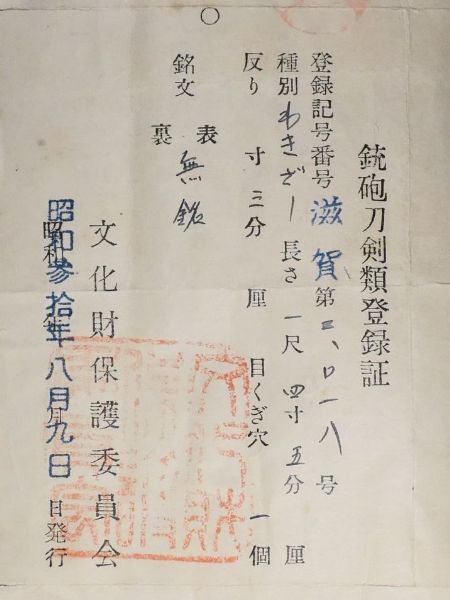 銃砲刀剣類登録証
登録記号番号 滋賀 第三、〇一八号
種別 わきざし 長さ 一尺 四寸 五分 厘
反り 寸 三分 厘 目くぎ穴 一個
銘文 表 無銘
裏
文化財保護委員会
昭和参拾年八月九日
昭和 年 月 日発行